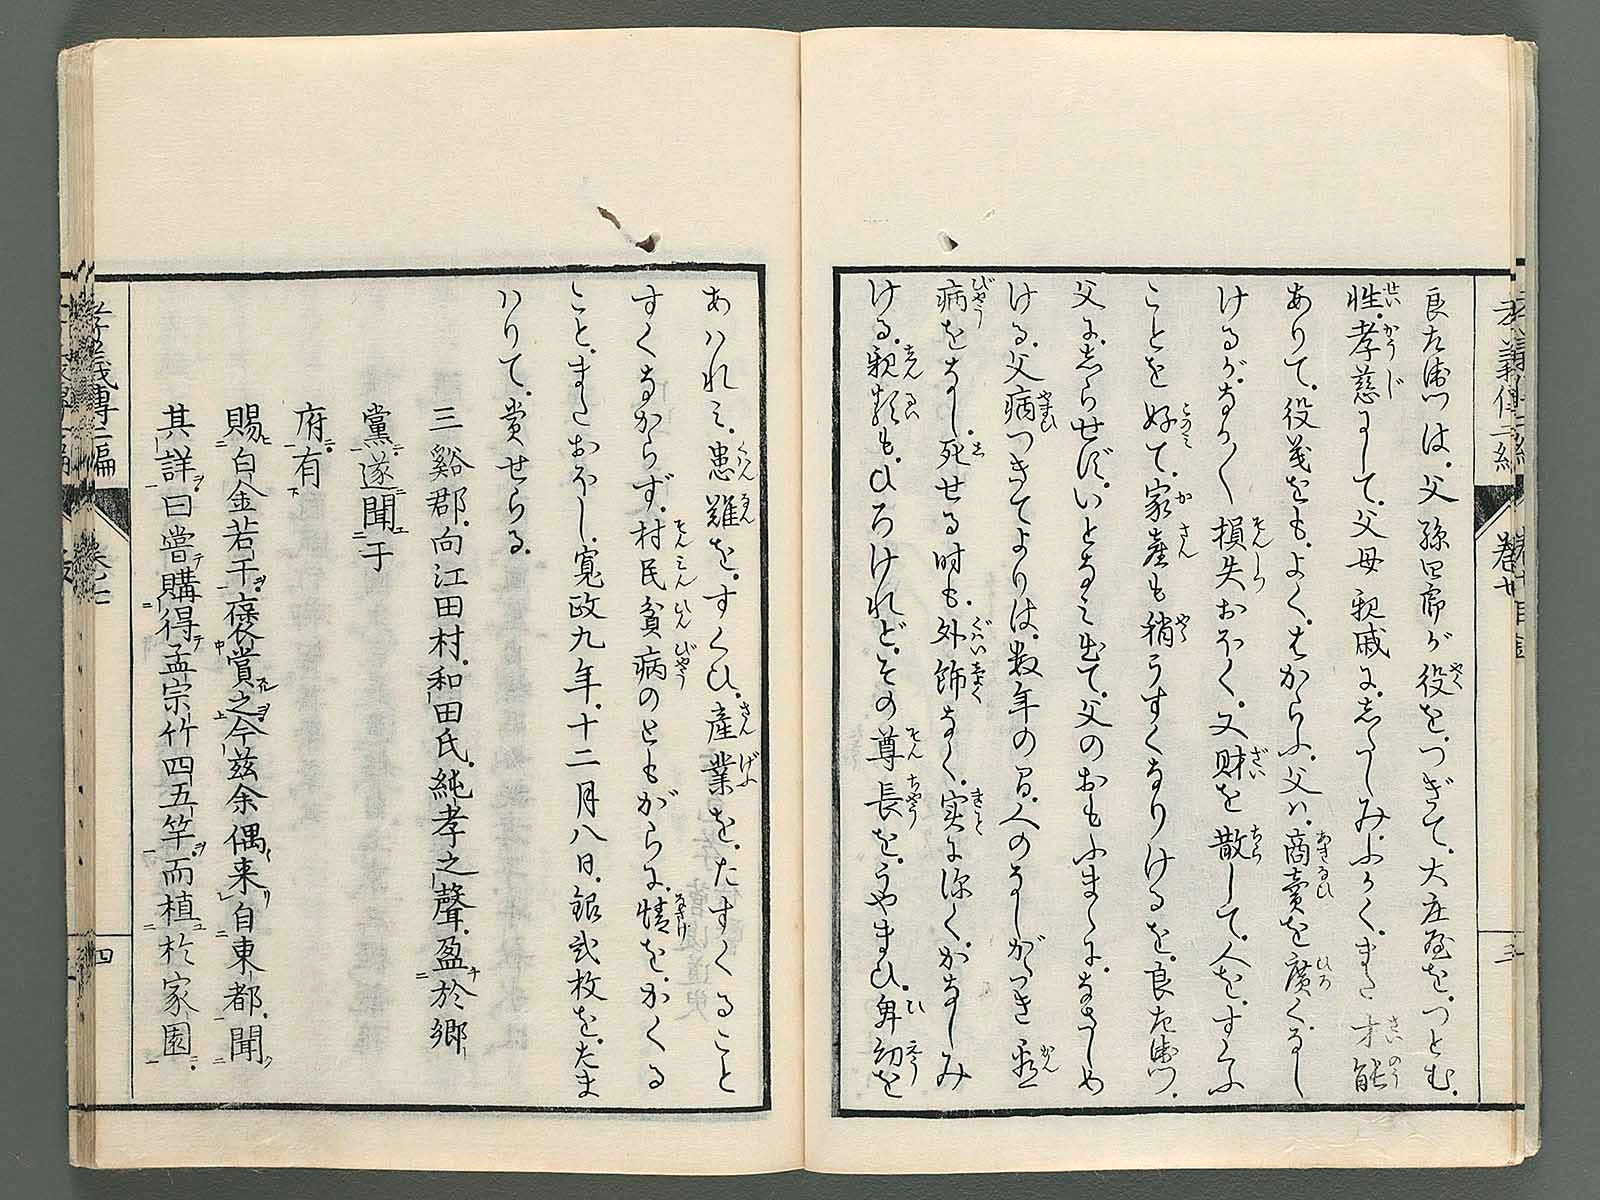 良左衛門は、父孫四郎が役を、つぎて、大庄屋を、つとむ、
性、孝慈にして、父母親戚に、したしみ、ふかく、また才能
ありて、役義をも、よく、はからふ、父ハ、商賣を廣くなし
けるが、なかく損失おほく、又財を散して、人を、すくふ
ことを好て、家産も稍うすくなりけるを、良左衛門、
父に、しらせず、いとなみ出て、父のおもふまゝに、なさしめ
ける、父病つきてよりは、数年の間、人のなしがたき看
病をなし、死せる時も、外飾なく、実に深く、かなしみ
ける、親類も、ひろけれど、その尊長を、うやまひ、卑幼を
あハれミ、患難を、すくひ、産業を、たすくること
すくなからず、村民貧病のともがらに、情を、かくる
こと、またおほし、寛政九年、十二月八日、銀弐枚を、たま
ハりて、賞せらる、
三谿郡、向江田村、和田氏、純孝之聲、盈於郷
黨、遂聞于
府、有
賜白金若干、褒賞之、今茲余偶来自東都、聞
其詳曰、嘗購得孟宗竹四五竿、而植於家園
孝義傳二編
巻七
四